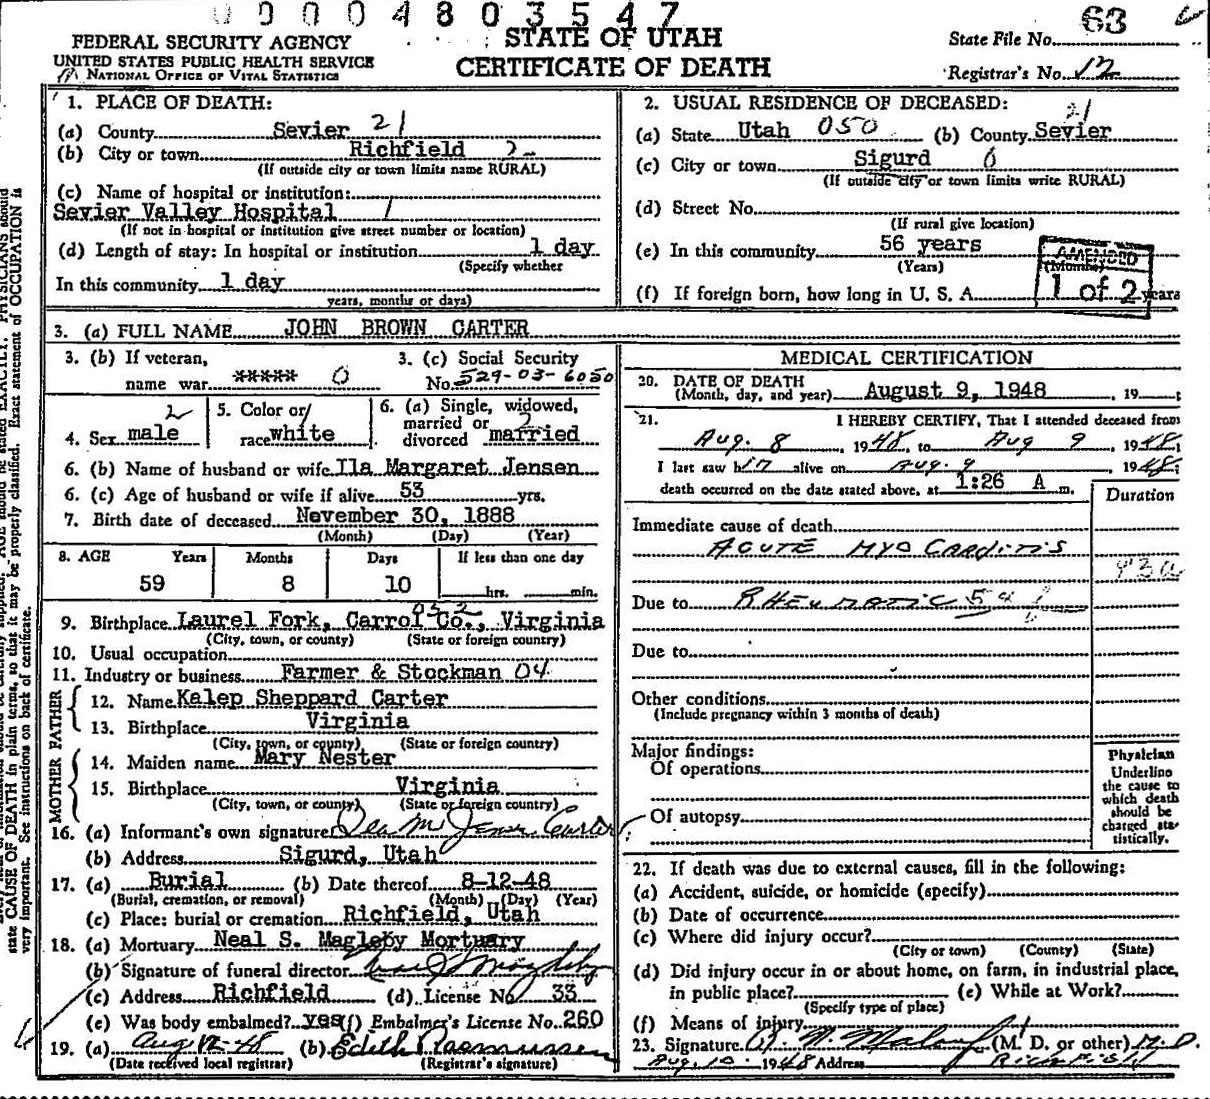 0 0 0 0 4 8 0 3 5 4 7
FEDERAL SECURITY AGENCY
UNITED STATES PUBLIC HEALTH SERVICE
NATIONAL OFFICE OF VITAL STATISTICS
STATE OF UTAH
CERTIFICATE OF DEATH
State File No. 63
Registrar's No. 12
1. PLACE OF DEATH:
(a) County Sevier 21
(b) City or town Richfield 2
(If outside city or town limits name RURAL)
(c) Name of hospital or institution:
Sevier Valley Hospital 1
(If not in hospital or institution give street number or location)
(d) Length of stay: In hospital or institution 1 day
(Specify whether
In this community 1 day
years, months or days)
2. USUAL RESIDENCE OF DECEASED:
21
(a) State Utah 050 (b) County Sevier
(c) City or town Sigurd 0
(If outside city or town limits write RURAL)
(d) Street No.
(If rural give location)
(e) In this community 56 years
(Years) (Months)
(f) If foreign born, how long in U. S. A. years
AMENDED
1 of 2
3. (a) FULL NAME JOHN BROWN CARTER
3. (b) If veteran,
name war ***** 0
3. (c) Social Security
No. 529-03-6050
4. Sex male 2
5. Color or
race white
6. (a) Single, widowed,
married or
divorced married 2
6. (b) Name of husband or wife Ila Margaret Jensen
6. (c) Age of husband or wife if alive 53 yrs.
7. Birth date of deceased November 30, 1888
(Month) (Day) (Year)
8. AGE Years Months Days If less than one day
59 8 10 hrs. min.
9. Birthplace Laurel Fork, Carrol Co., Virginia
(City, town, or county) (State or foreign country)
10. Usual occupation
11. Industry or business Farmer & Stockman 04
FATHER
12. Name Kalep Sheppard Carter
13. Birthplace Virginia
(City, town, or county) (State or foreign country)
MOTHER
14. Maiden name Mary Nester
15. Birthplace Virginia
(City, town, or county) (State or foreign country)
16. (a) Informant's own signature Ila M Jensen Carter
(b) Address Sigurd, Utah
17. (a) Burial (b) Date thereof 8-12-48
(Burial, cremation, or removal) (Month) (Day) (Year)
(c) Place: burial or cremation Richfield, Utah
18. (a) Mortuary Neal S. Magleby Mortuary
(b) Signature of funeral director Neal S Magleby
(c) Address Richfield (d) License No. 33
(e) Was body embalmed? yes (f) Embalmer's License No. 260
19. (a) Aug 12-48 (b) Edith Rasmussen
(Date received local registrar) (Registrar's signature)
MEDICAL CERTIFICATION
20. DATE OF DEATH
(Month, day, and year) August 9, 1948 , 19 ;
21. I HEREBY CERTIFY, That I attended deceased from
Aug. 8 , 1948, to Aug 9 , 1948;
I last saw him alive on Aug. 9 , 1948;
death occurred on the date stated above, at 1:26 A m.
Duration
Immediate cause of death
ACUTE MYOCARDITIS
93a
Due to RHEUMATIC
Due to
Other conditions
(Include pregnancy within 3 months of death)
Major findings:
Of operations
Of autopsy
Physician
Underline
the cause to
which death
should be
charged sta-
tistically.
22. If death was due to external causes, fill in the following:
(a) Accident, suicide, or homicide (specify)
(b) Date of occurrence
(c) Where did injury occur?
(City or town) (County) (State)
(d) Did injury occur in or about home, on farm, in industrial place,
in public place? (e) While at Work?
(Specify type of place)
(f) Means of injury
23. Signature (M. D. or other) M.D.
Aug. 10 1948 Address Richfield
state CAUSE OF DEATH in plain terms, so that it may be properly classified. Exact statement of OCCUPATION is
very important. See instructions on back of certificate.